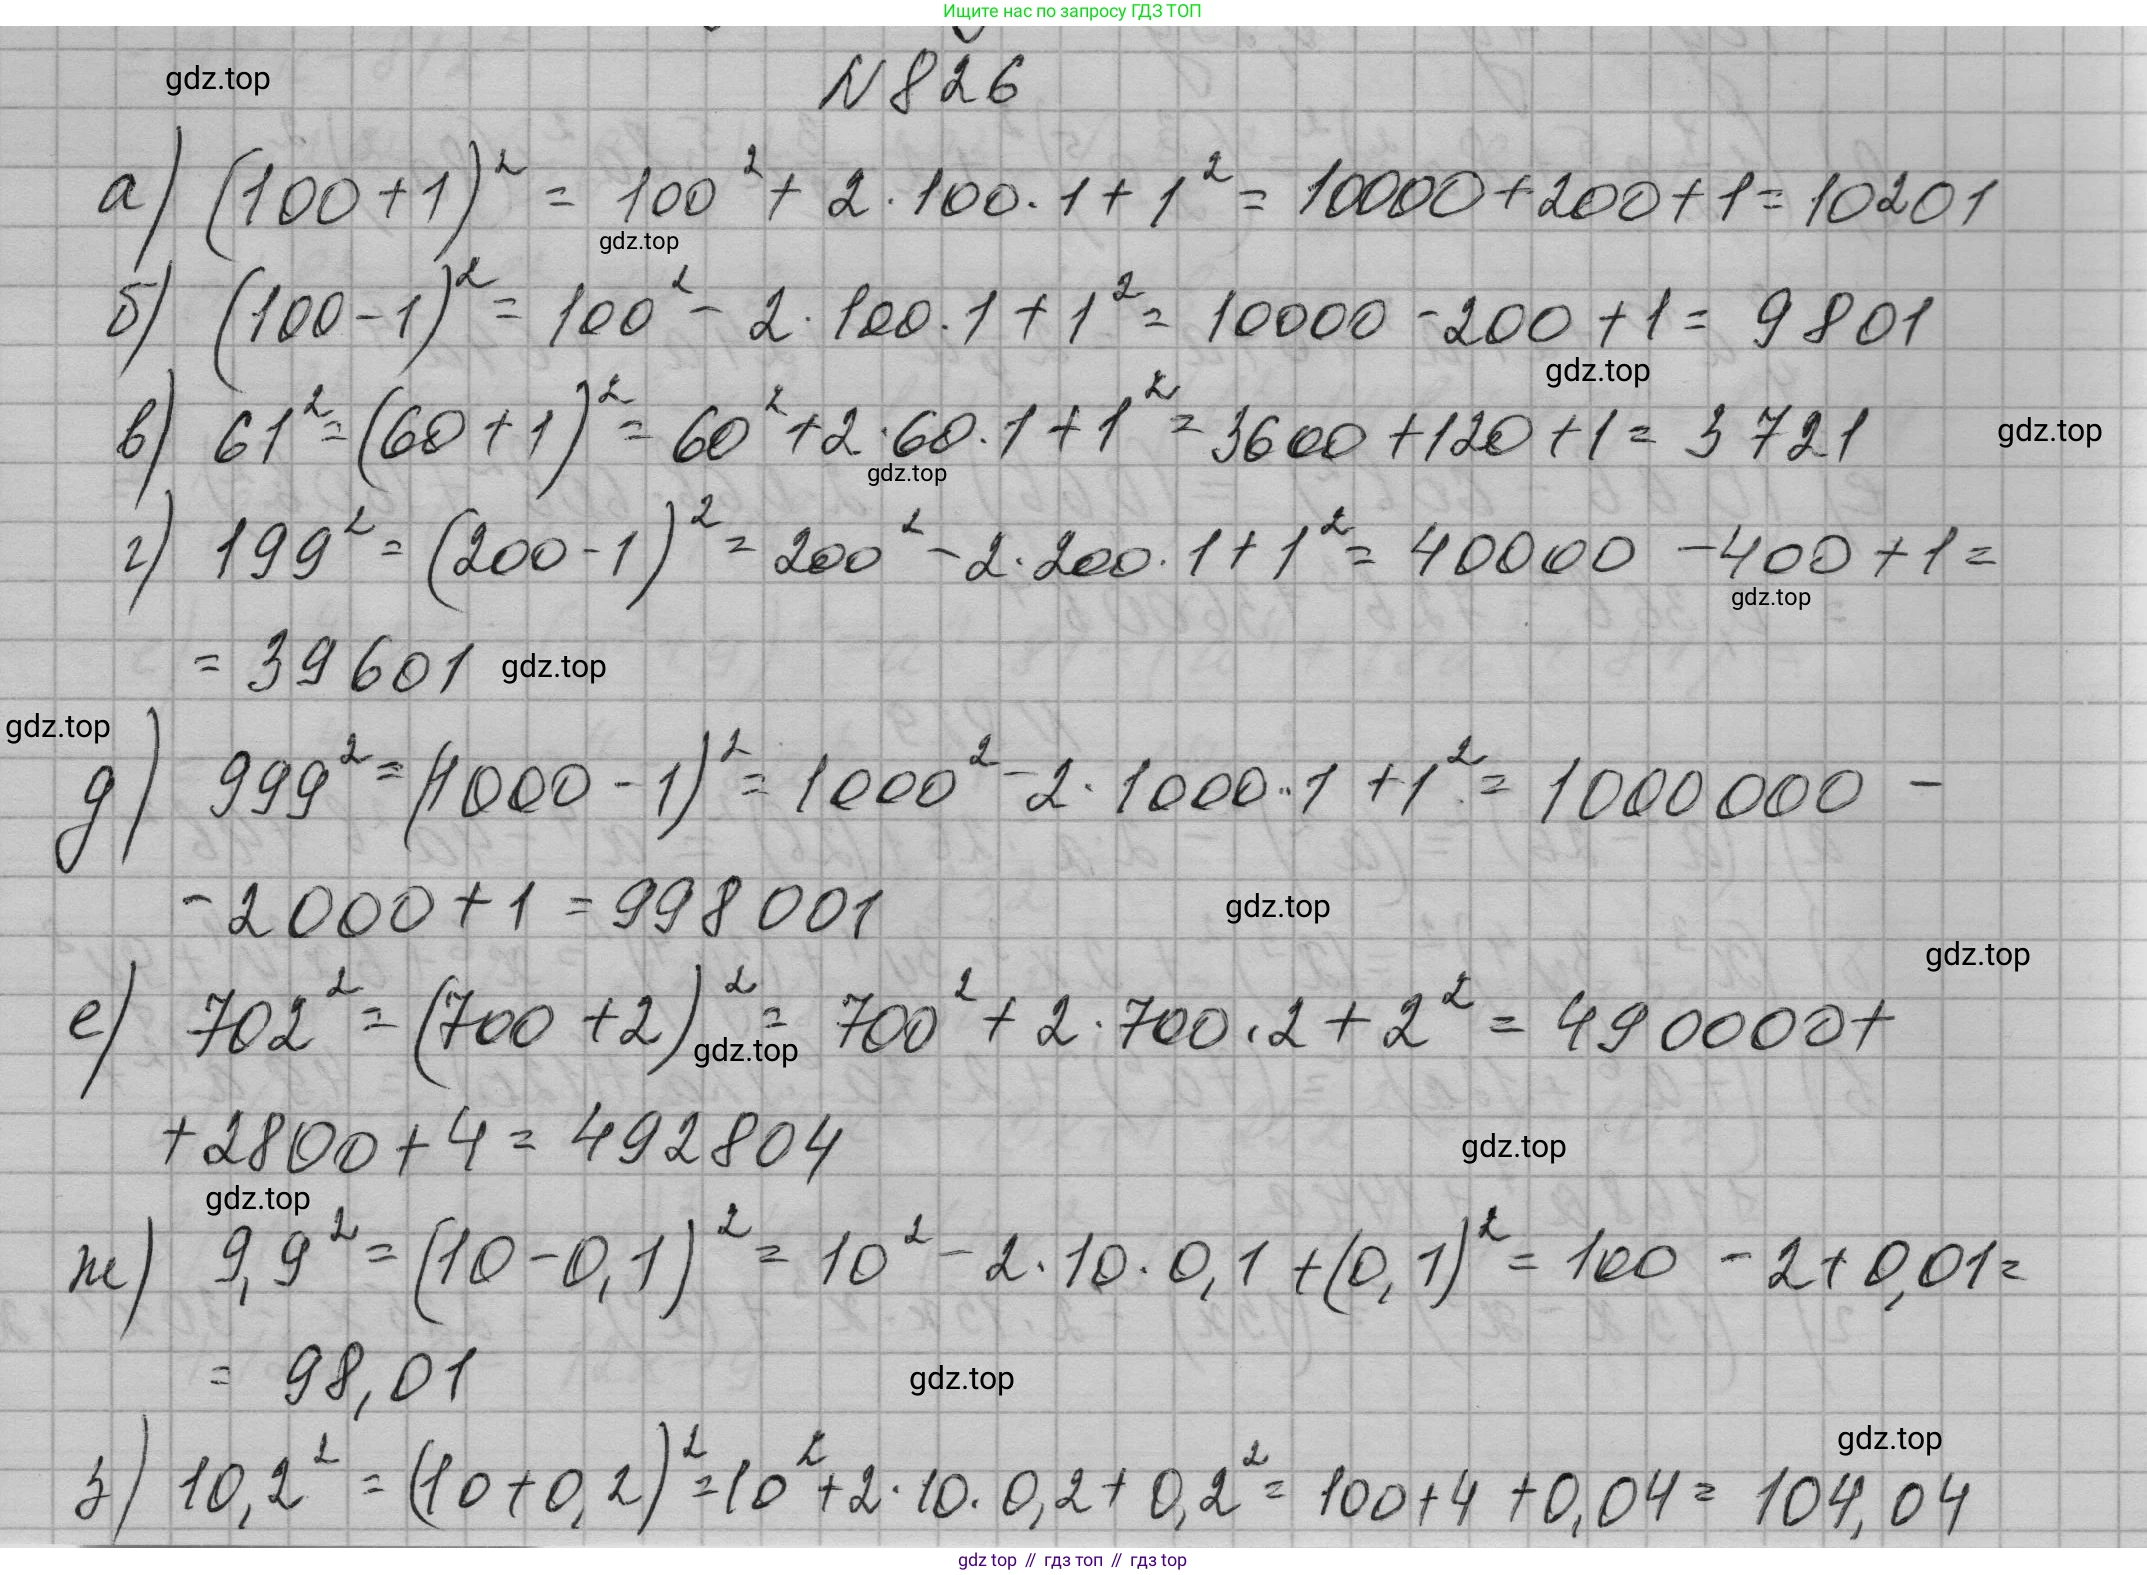 Ищите нас по запросу ГДЗ ТОП
N826
gdz.top
а) (100+1)² = 100² + 2·100·1 + 1² = 10000+200+1 = 10201
gdz.top
б) (100-1)² = 100² - 2·100·1 + 1² = 10000 -200 +1 = 9801
gdz.top
в) 61² = (60+1)² = 60² + 2·60·1 + 1² = 3600 +120 +1 = 3721
gdz.top
gdz.top
г) 199² = (200-1)² = 200² - 2·200·1 + 1² = 40000 -400 +1 =
gdz.top
= 39601
gdz.top
gdz.top
д) 999² = (1000-1)² = 1000² - 2·1000·1 + 1² = 1000000 -
-2000+1 = 998001
gdz.top
gdz.top
е) 702² = (700+2)² = 700² + 2·700·2 + 2² = 490000+
gdz.top
+2800+4 = 492804
gdz.top
gdz.top
ж) 9,9² = (10-0,1)² = 10² - 2·10·0,1 + (0,1)² = 100 - 2 + 0,01 =
= 98,01
gdz.top
gdz.top
з) 10,2² = (10+0,2)² = 10² + 2·10·0,2 + 0,2² = 100+4+0,04 = 104,04
gdz top // гдз топ // гдз top